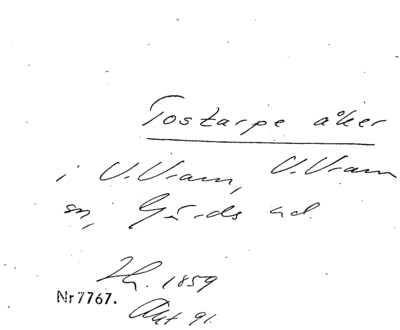 Tostarpe åker
i V. Vram, V. Vram
sn, Gärds hd.
Zh. 1859
Nr 7767.
Akt 91.